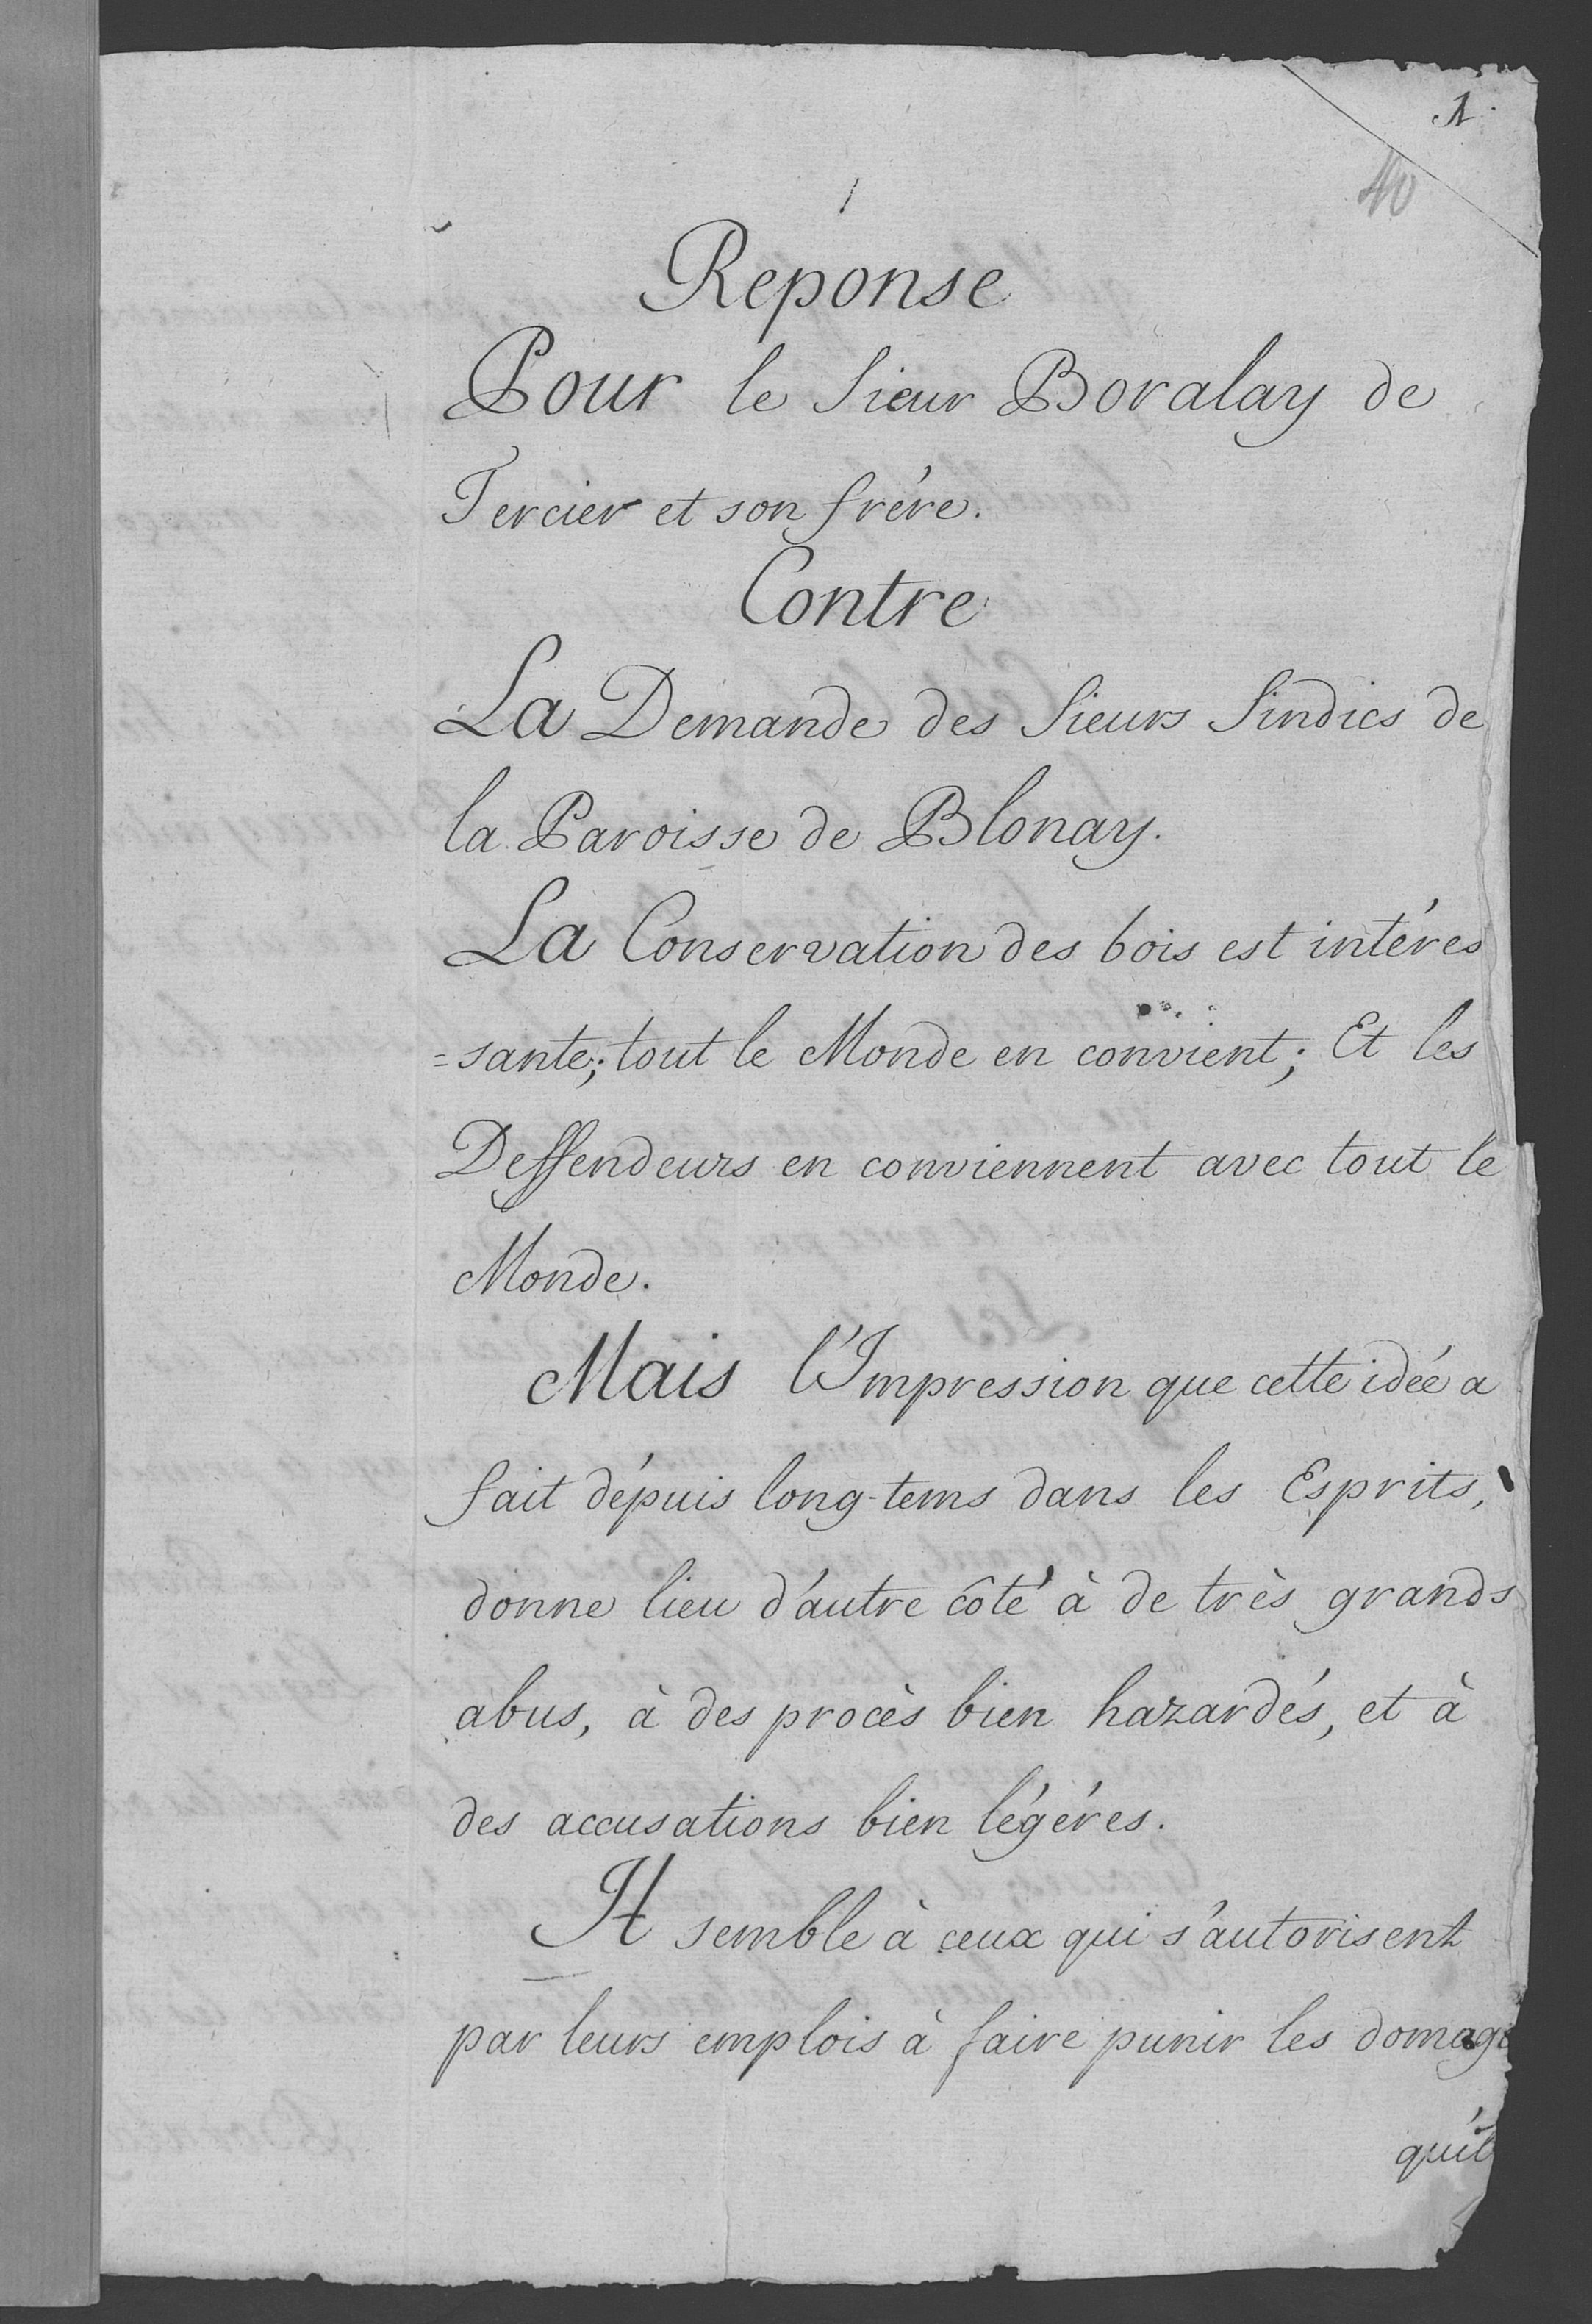 1.
40
Reponse
Pour le Sieur Boralay de
Tercier et son frére.
Contre
La Demande des Sieurs Sindics de
la Paroisse de Blonay.
La Conservation des bois est intéres
=sante; tout le Monde en convient; Et les
Deffendeurs en conviennent avec tout le
Monde.
Mais l'Impression que cette idée a
fait dépuis long-tems dans les Esprits,
donne lieu d'autre côté à de très grands
abus, à des procès bien hazardés, et à
des accusations bien légéres.
Il semble à ceux qui s'autorisent
par leurs emplois à faire punir les domage
qu'il